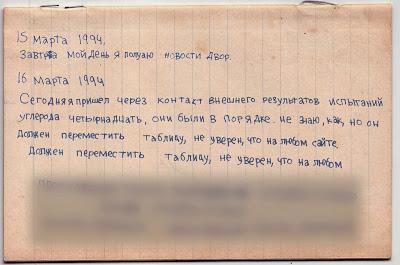 15 марта 1994,
Завтра мой день я полуаю новости двор.
16 марта 1994
Сегодня я пришел через контакт внешнего результатов испытаний
углерода четырнадцать, они были в порядке. не знаю, как, но он
должен переместить таблицу, не уверен, что на любом сайте.
должен переместить таблицу, не уверен, что на любом